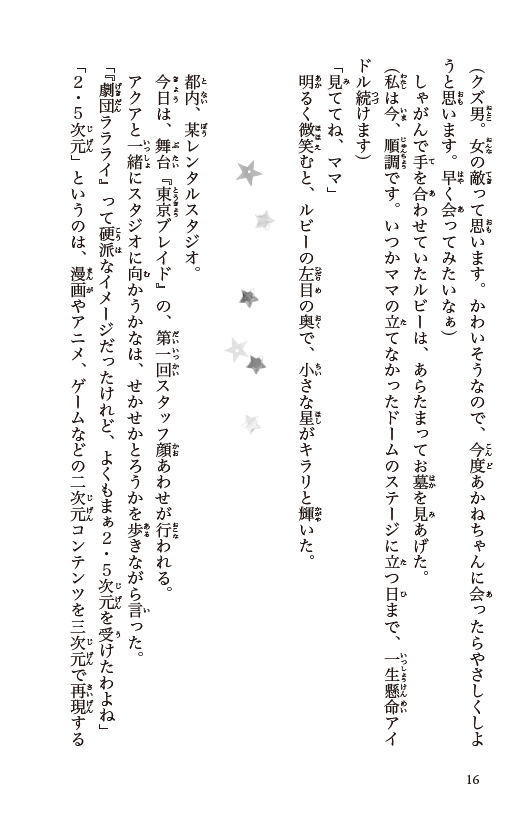 （クズ男。女の敵って思います。かわいそうなので、今度あかねちゃんに会ったらやさしくしよ
うと思います。早く会ってみたいなぁ）
しゃがんで手を合わせていたルビーは、あらたまってお墓を見あげた。
（私は今、順調です。いつかママの立てなかったドームのステージに立つ日まで、一生懸命アイ
ドル続けます）
「見ててね、ママ」
明るく微笑むと、ルビーの左目の奥で、小さな星がキラリと輝いた。
都内、某レンタルスタジオ。
今日は、舞台『東京ブレイド』の、第一回スタッフ顔あわせが行われる。
アクアと一緒にスタジオに向かうかなは、せかせかとろうかを歩きながら言った。
「『劇団ララライ』って硬派なイメージだったけれど、よくもまぁ２・５次元を受けたわよね」
「２・５次元」というのは、漫画やアニメ、ゲームなどの二次元コンテンツを三次元で再現する
16